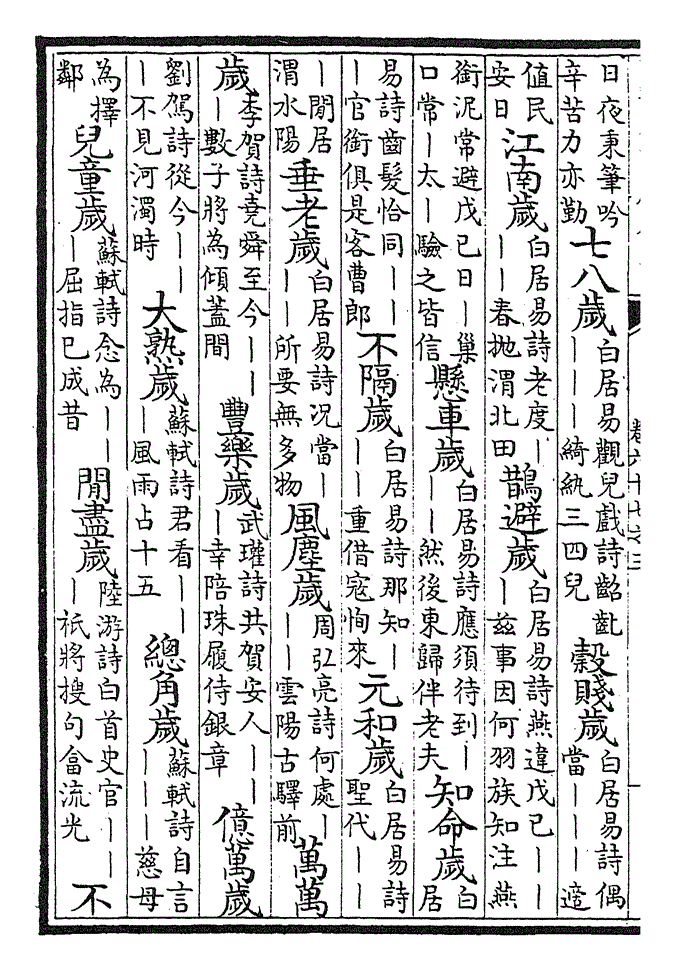 日夜秉筆吟辛苦力亦勤七八歲白居易觀兒戲詩齠齓｜｜｜綺紈三四兒穀賤歲白居易詩偶當｜｜｜適
值民安日江南歲白居易詩老度｜｜｜春抛渭北田鵲避歲白居易詩燕違戊己｜｜｜兹事因何羽族知注燕
銜泥常避戊己日｜巢口常｜太｜驗之皆信懸車歲白居易詩應須待到｜｜｜然後東歸伴老夫知命歲白居
易詩齒髮恰同｜｜｜官銜俱是客曹郎不隔歲白居易詩那知｜｜｜重借寇恂來元和歲白居易詩聖代｜｜
｜閒居渭水陽垂老歲白居易詩况當｜｜｜所要無多物風塵歲周弘亮詩何處｜｜｜雲陽古驛前萬萬
歲李賀詩堯舜至今｜｜｜數子將為傾蓋間豐樂歲武瓘詩共賀安人｜｜｜幸陪珠履侍銀章億萬歲
劉駕詩從今｜｜｜不見河濁時大熟歲蘇軾詩君看｜｜｜風雨占十五總角歲蘇軾詩自言｜｜｜慈母
為擇鄰兒童歲蘇軾詩念為｜｜｜屈指已成昔閒盡歲陸游詩白首史官｜｜｜祇將搜句畣流光不